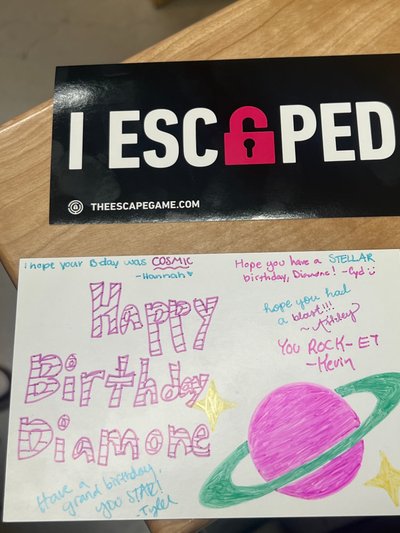 I ESCAPED
THEESCAPEGAME.COM
I hope your B-day was COSMIC
-Hannah
Hope you have a STELLAR
birthday, Diamone! -Cyd
Happy
Birthday
Diamone
hope you had
a blast!!!
~ Ashley
You ROCK-ET
-Kevin
Have a
grand birthday,
you STAR!
Tyler